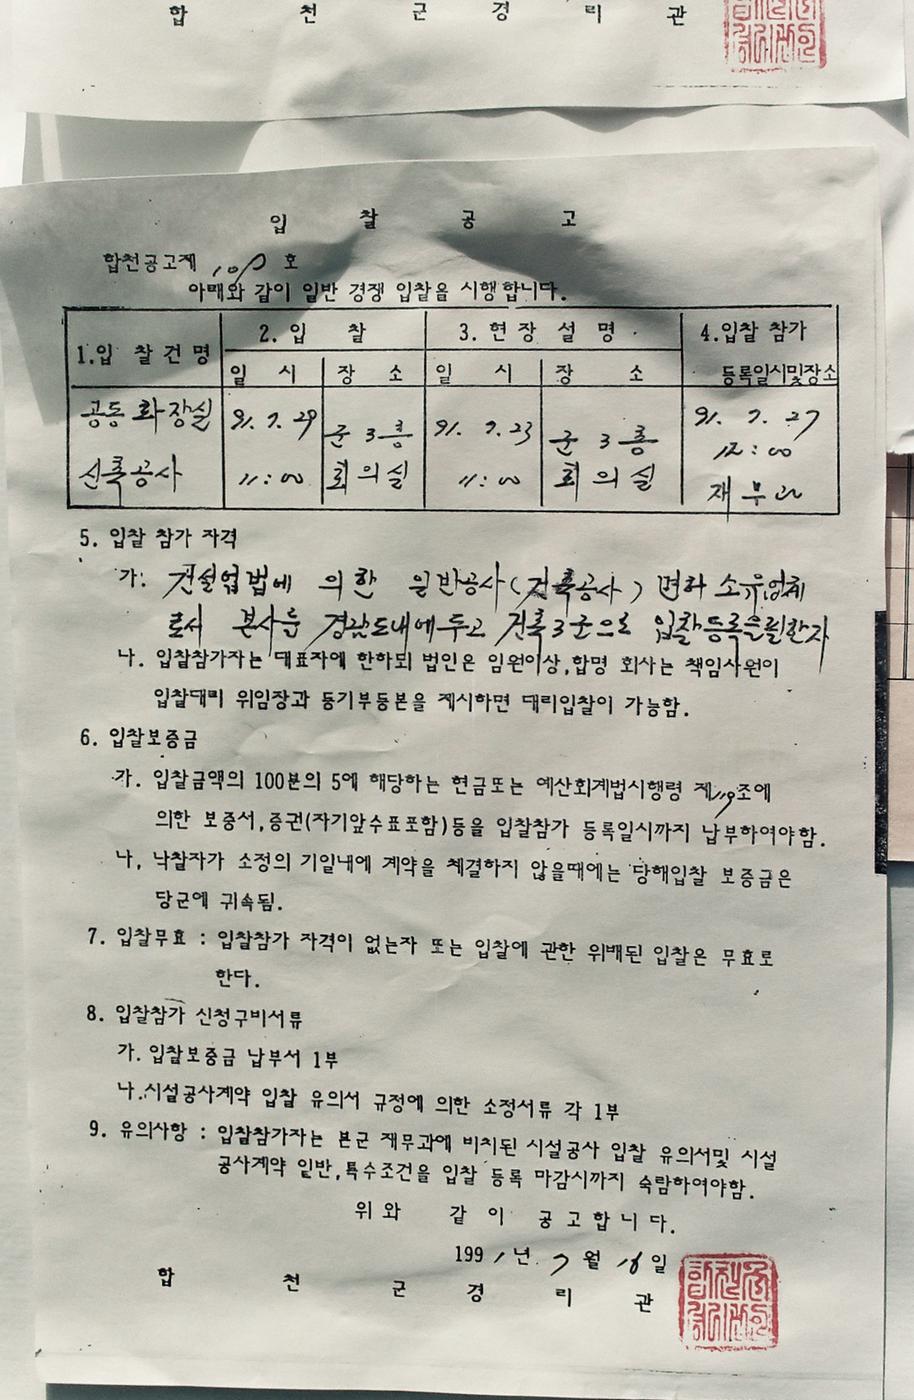 합 천 군 경 리 관
입 찰 공 고
합천공고제 호
아래와 같이 일반 경쟁 입찰을 시행합니다.
1.입 찰건명 2.입 찰 3.현장설명 4.입찰 참가
일 시 장 소 일 시 장 소 등록일시및장소
공동 화장실 91. 7. 29 군 3층 91. 7. 23 군 3층 91. 7. 27
12:00
신축공사 11:00 회의실 11:00 회의실 재무과
5. 입찰 참가 자격
가. 건설업법에 의한 일반공사(건축공사) 면허 소유업체
로서 본사를 경남도내에두고 건축3군으로 입찰등록을필한자
나. 입찰참가자는 대표자에 한하되 법인은 임원이상,합명 회사는 책임사원이
입찰대리 위임장과 등기부등본을 제시하면 대리입찰이 가능함.
6. 입찰보증금
가. 입찰금액의 100분의 5에 해당하는 현금또는 예산회계법시행령 제119조에
의한 보증서,증권(자기앞수표포함)등을 입찰참가 등록일시까지 납부하여야함.
나, 낙찰자가 소정의 기일내에 계약을 체결하지 않을때에는 당해입찰 보증금은
당군에 귀속됨.
7. 입찰무효 : 입찰참가 자격이 없는자 또는 입찰에 관한 위배된 입찰은 무효로
한다.
8. 입찰참가 신청구비서류
가. 입찰보증금 납부서 1부
나.시설공사계약 입찰 유의서 규정에 의한 소정서류 각 1부
9. 유의사항 : 입찰참가자는 본군 재무과에 비치된 시설공사 입찰 유의서및 시설
공사계약 일반,특수조건을 입찰 등록 마감시까지 숙람하여야함.
위와 같이 공고합니다.
1991년 7월 16일
합 천 군 경 리 관